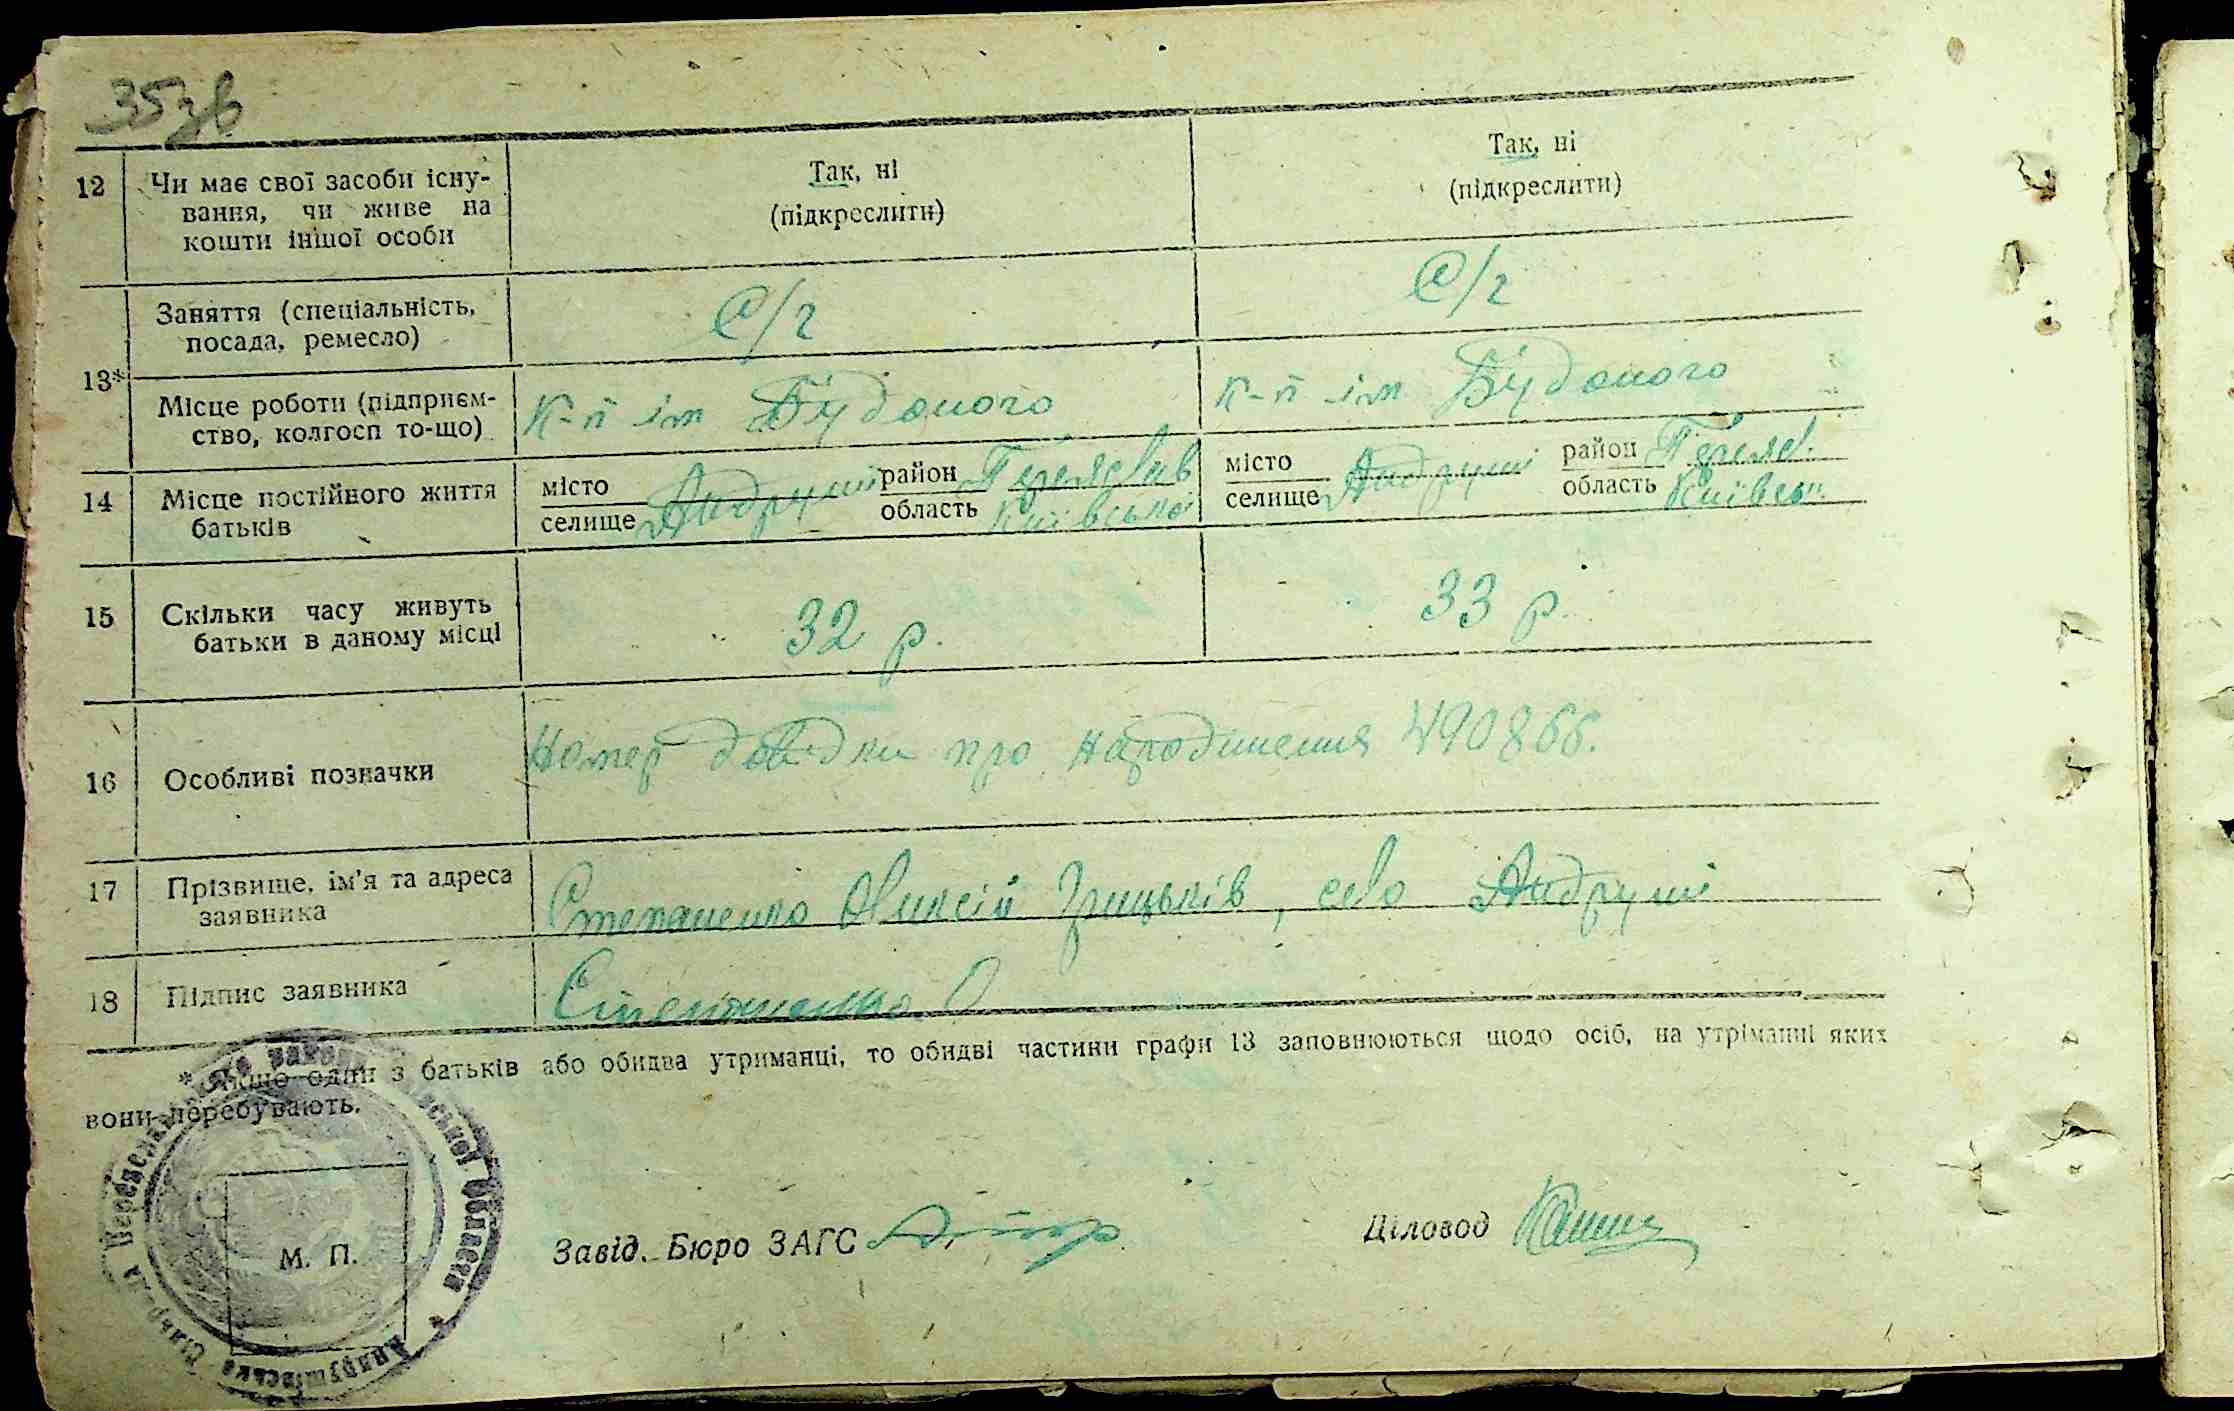 35зв
12 Чи має свої засоби існу- Так, ні Так, ні
вання, чи живе на (підкреслити) (підкреслити)
кошти іншої особи
Заняття (спеціальність, С/г С/г
посада, ремесло)
13*
Місце роботи (підприєм- К-п ім Будоного К-п ім Будоного
ство, колгосп то-що)
14 Місце постійного життя місто район Переяслав місто район Переясл.
батьків селище Андруші область Київської селище Андруші область Київськ.
15 Скільки часу живуть 32 р. 33 р.
батьки в даному місці
16 Особливі позначки Номер довідки про народження 490866.
17 Прізвище, ім'я та адреса Степаненко Олексій Грицьків, село Андруші
заявника
18 Підпис заявника Степаненко О
* Якщо один з батьків або обидва утриманці, то обидві частини графи 13 заповнюються щодо осіб, на утріманні яких
вони перебувають.
М. П.
Завід. Бюро ЗАГС
Діловод
Андрушівська Сільрада
області